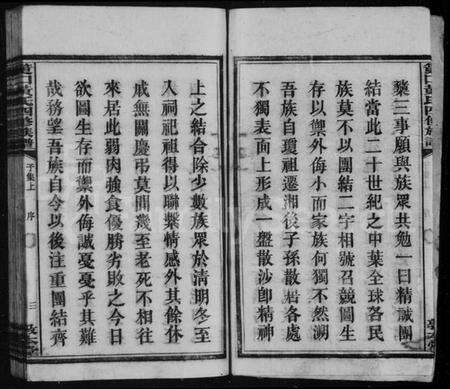 蘖三事願與族眾共勉一曰精誠團
結當此二十世紀之中葉全球各民
族莫不以團結二字相號召競圖生
存以禦外侮小而家族何獨不然溯
吾族自瓊祖遷湘後子孫散居各處
不獨表面上形成一盤散沙即精神
上之結合除少數族眾於清期冬至
入祠祀祖得以聯繫情感外其餘休
戚無關慶弔莫問幾至老死不相往
來居此弱肉強食優勝劣敗之今日
欲圖生存而禦外侮誠憂憂乎其難
哉務望吾族自今以後注重團結齊
氏四修族譜
子集上
序
三